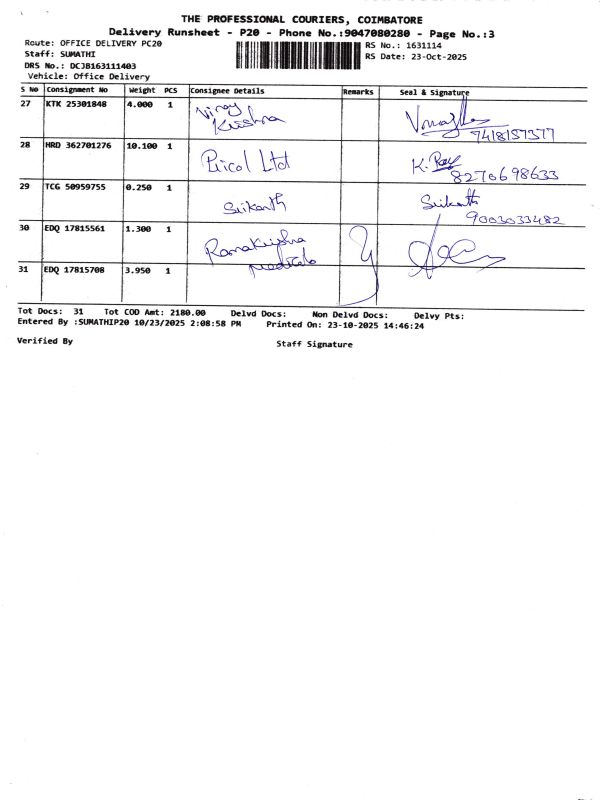 THE PROFESSIONAL COURIERS, COIMBATORE
Delivery Runsheet - P20 - Phone No.:9047080280 - Page No.:3
Route: OFFICE DELIVERY PC20
RS No.: 1631114
Staff: SUMATHI
RS Date: 23-Oct-2025
DRS No.: DCJB163111403
Vehicle: Office Delivery
S No Consignment No Weight PCS Consignee Details Remarks Seal & Signature
27 KTK 25301848 4.000 1 Vinay Krishna 7418157377
28 HRD 362701276 10.100 1 Pricol Ltd K. Ray 8270698633
29 TCG 50959755 0.250 1 Srikanth Srikanth 9003033482
30 EDQ 17815561 1.300 1 Ramakrishna medicals
31 EDQ 17815708 3.950 1
Tot Docs: 31 Tot COD Amt: 2180.00 Delvd Docs: Non Delvd Docs: Delvy Pts:
Entered By :SUMATHIP20 10/23/2025 2:08:58 PM Printed On: 23-10-2025 14:46:24
Verified By Staff Signature